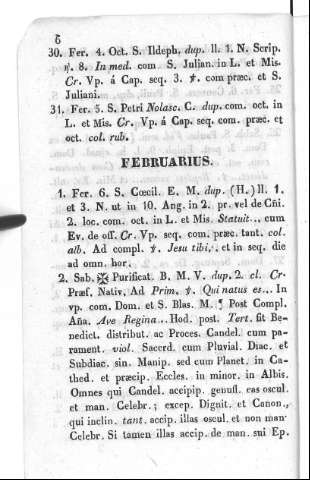 6
30. Fer. 4. Oct. S. Ildeph. dup. ll. 1. N. Scrip.
℣. 8. In med. com S. Julian. in L. et Mis.
Cr. Vp. á Cap. seq. 3. ✝. com præc. et S.
Juliani.
31. Fer. 5. S. Petri Nolasc. C. dup. com. oct. in
L. et Mis. Cr. Vp. á Cap. seq. com. præc. et
oct. col. rub.
FEBRUARIUS.
1. Fer. 6. S. Cœcil. E. M. dup. (H.) ll. 1.
et 3. N. ut in 10. Ang. in 2. pr. vel de Cñi.
2. loc. com. oct. in L. et Mis. Statuit... cum
Ev. de off. Cr. Vp. seq. com. præc. tant. col.
alb. Ad compl. ✝. Jesu tibi.. et in seq. die
ad omn. hor.
2. Sab. ✠ Purificat. B. M. V. dup. 2. cl. Cr.
Præf. Nativ. Ad Prim. ✝. Qui natus es... In
vp. com. Dom. et S. Blas. M. ¶ Post Compl.
Aña. Ave Regina... Hod. post. Tert. fit Be-
nedict. distribut. ac Proces. Candel. cum pa-
rament. viol. Sacrd. cum Pluvial. Diac. et
Subdiac. sin. Manip. sed cum Planet. in Ca-
thed. et præcip. Eccles. in minor. in Albis.
Omnes qui Candel. accipip. genufl. eas oscul.
et man. Celebr.; excep. Dignit. et Canon.,
qui inclin. tant. accip. illas oscul. et non man.
Celebr. Si tamen illas accip. de man. sui Ep.